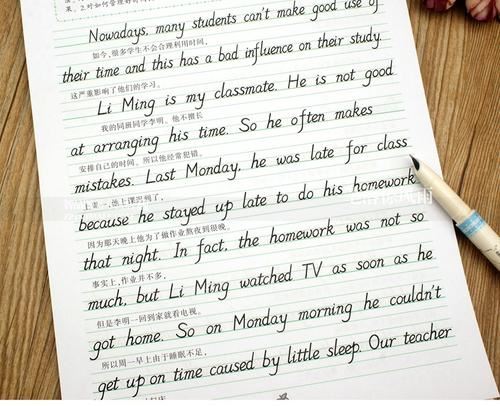 果。2.对如何管理好时间
Nowadays, many students can't make good use of
如今,很多学生不会合理利用时间,
their time and this has a bad influence on their study.
这严重影响了他们的学习。
Li Ming is my classmate. He is not good
我的同班同学李明。他不擅长
at arranging his time. So he often makes
安排自己的时间。所以他经常犯错。
mistakes. Last Monday, he was late for class
上周一,他上课迟到了,
because he stayed up late to do his homework
因为那天晚上他为了做作业熬夜到很晚。
that night. In fact, the homework was not so
事实上,作业并不多,
much, but Li Ming watched TV as soon as he
但是李明一回到家就看电视。
got home. So on Monday morning he couldn't
所以周一早上由于睡眠不足,
get up on time caused by little sleep. Our teacher